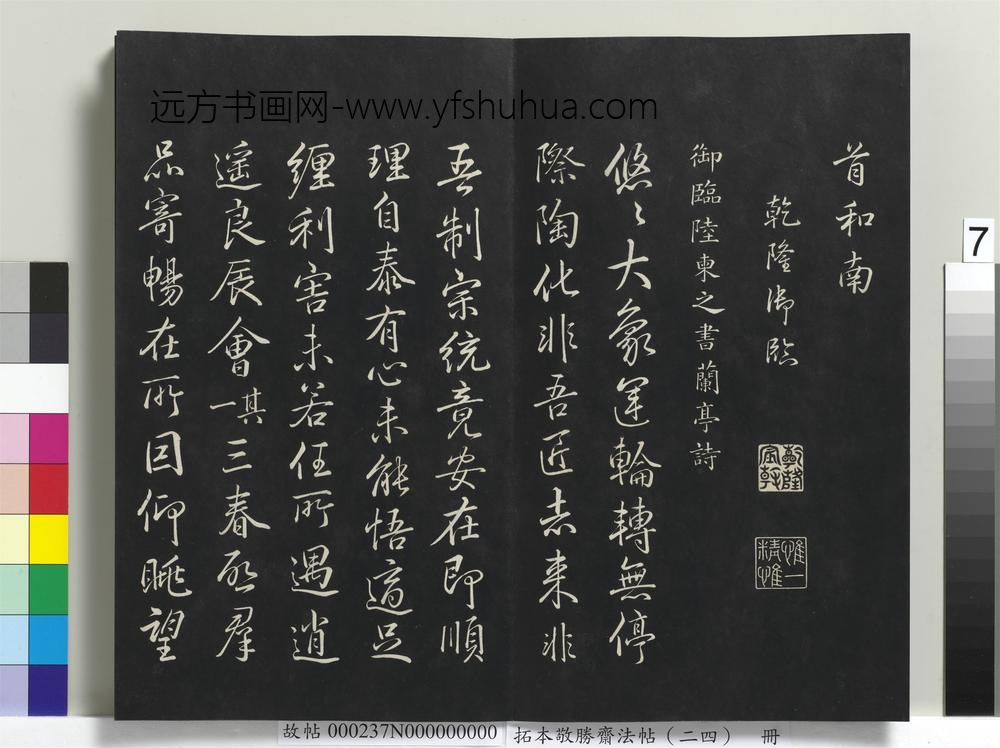 远方书画网-www.yfshuhua.com
首和南
乾隆御臨
乾隆宸翰
惟精惟一
御臨陸柬之書蘭亭詩
悠〻大象運輪轉無停
際陶化非吾匠去來非
吾制宗統竟安在即順
理自泰有心未能悟適足
纏利害未若任所遇逍
遥良辰會其一三春啟羣
品寄暢在所因仰眺望
7
故帖 000237N000000000
拓本敬勝齋法帖（二四） 冊